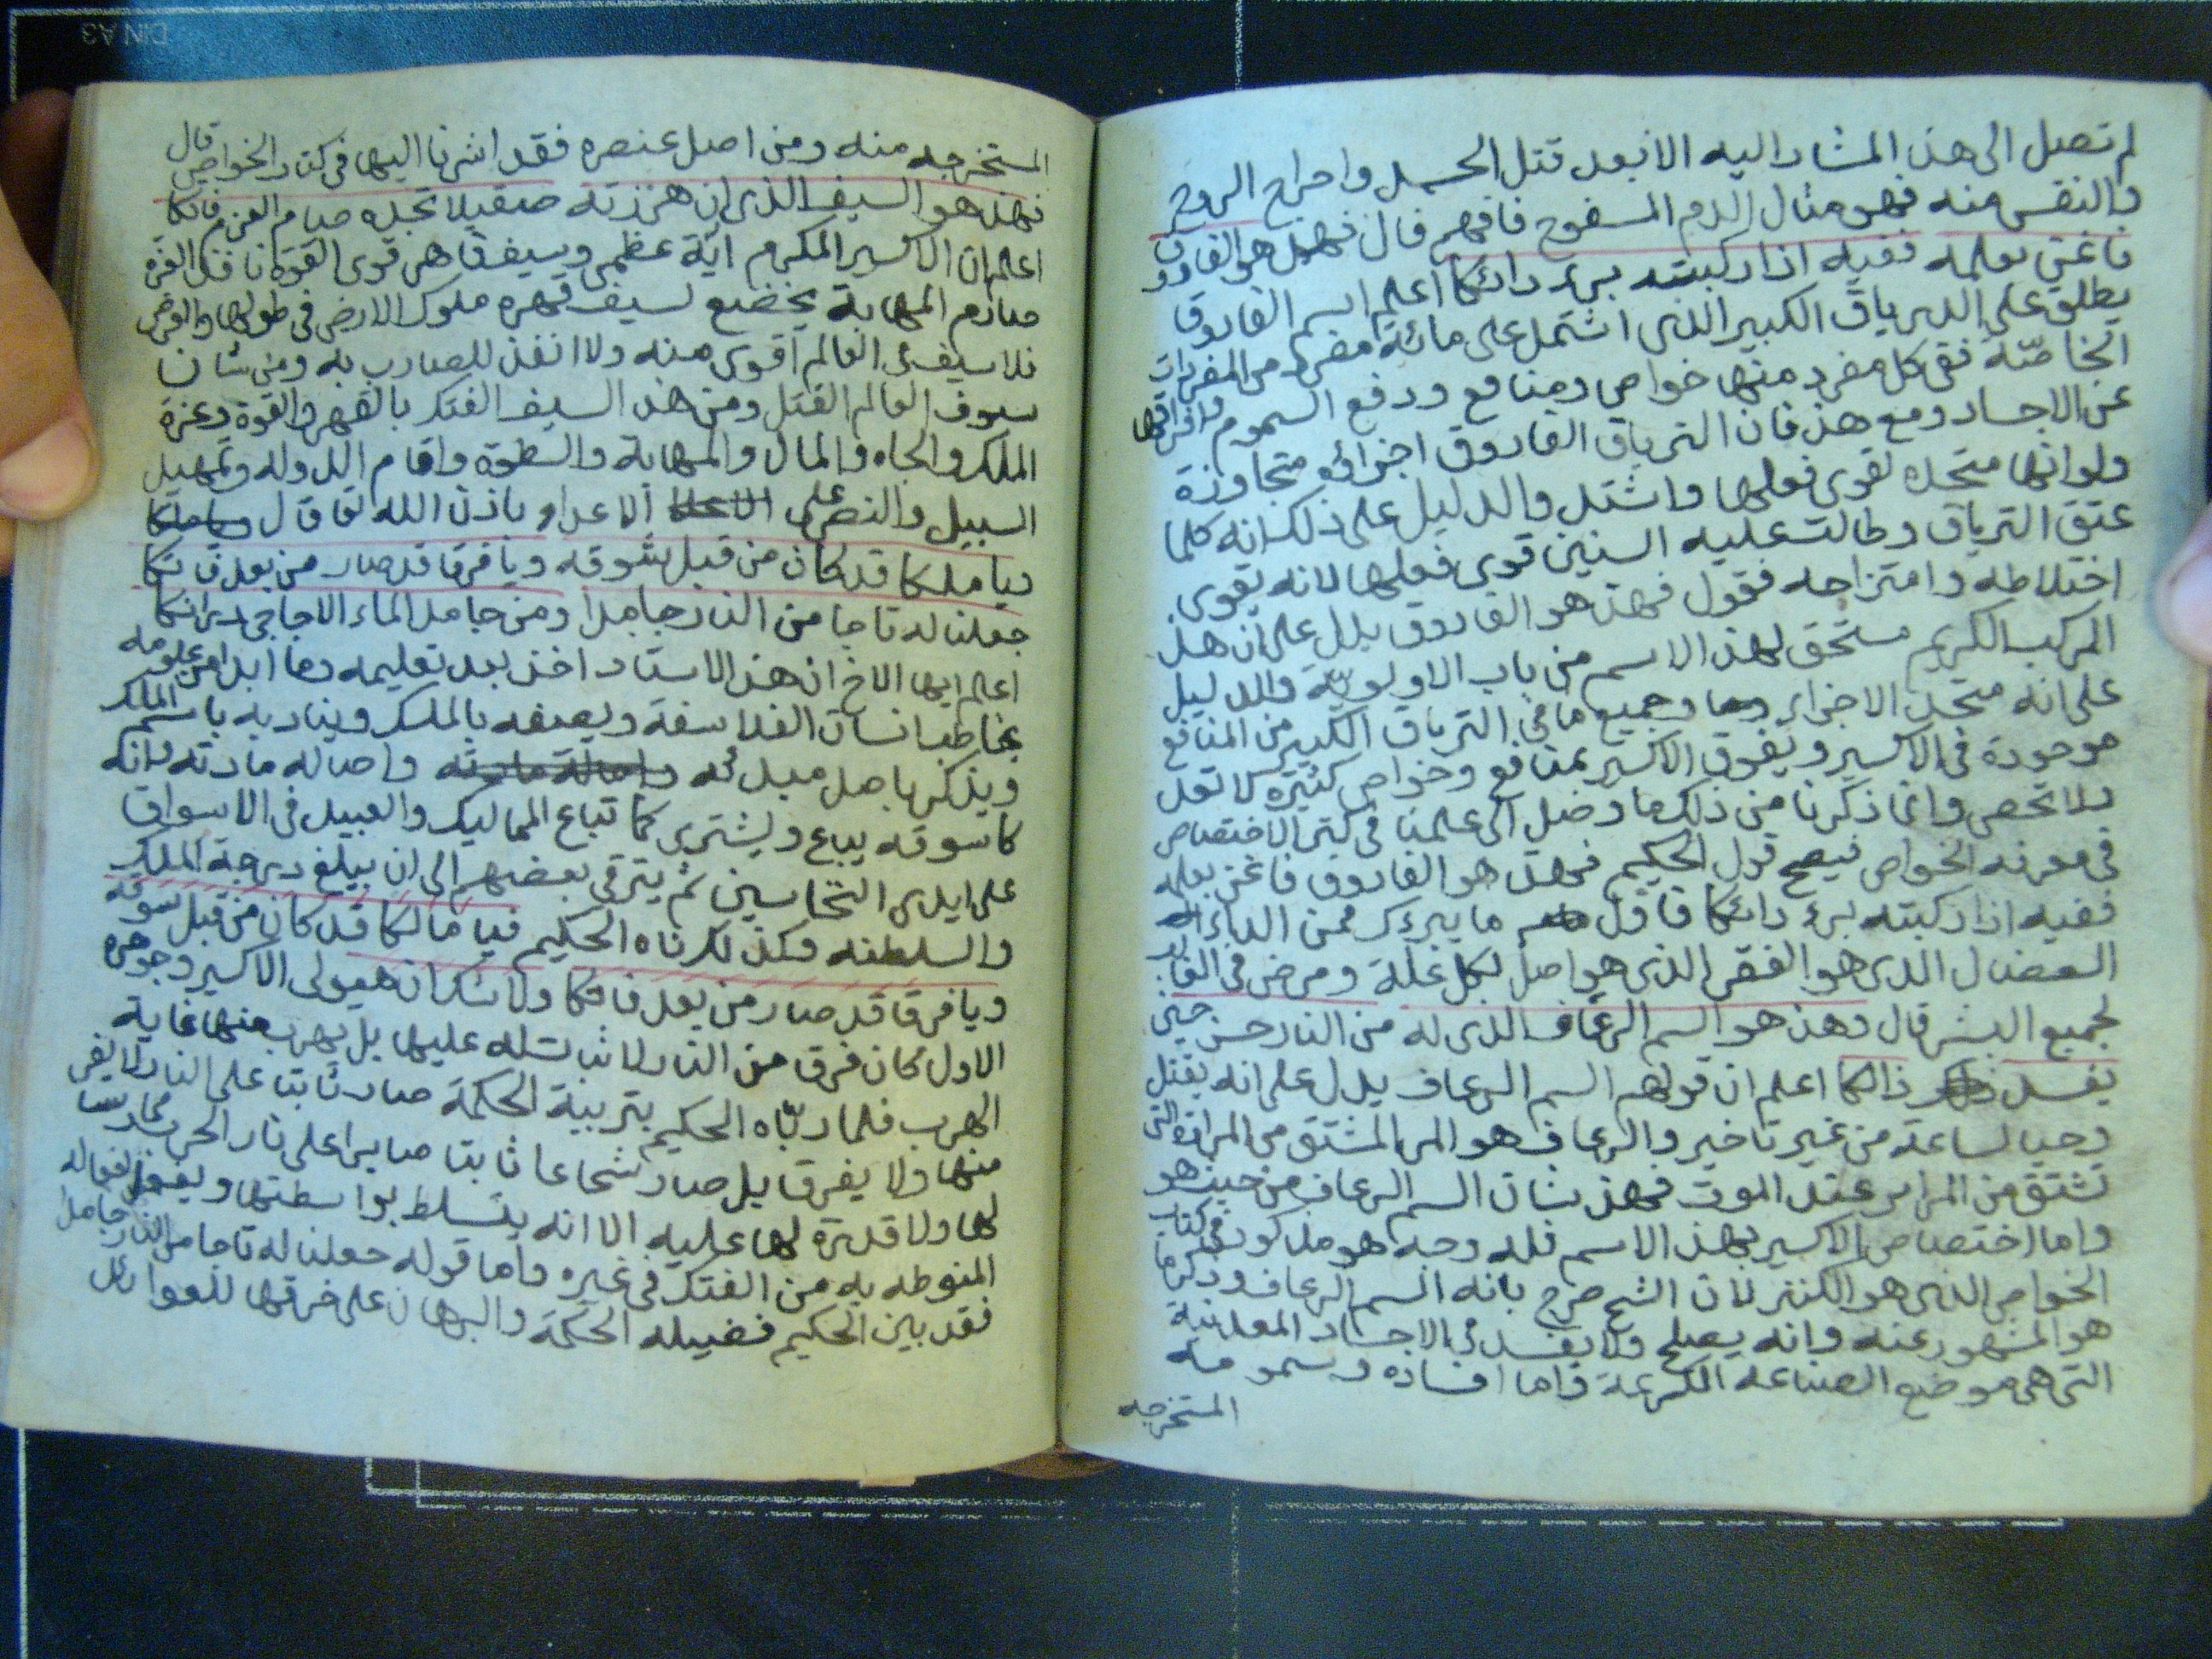 لم تصل الى هذا المشار اليه الا بعد قتل الجسد واخراج الروح
والنفس منه فهو مثال الدم المسفوح فافهم قال فهذا هو الفاروق
فاغتن بعلمه ففيه اذا ركبته برء دائكا اعلم اسم الفاروق
يطلق على الدرياق الكبير الذى اشتمل على مائة مفرد من المفردات
الخاصّة ففى كل مفرد منها خواص ومنافع ودفع السموم وافراقها
عن الاجساد ومع هذا فان الترياق الفاروق اجزاؤه متجاوزة
ولو انها متحده لقوى فعلها واشتد والدليل على ذلك انه كلما
عتق الترياق وطالت عليه السنين قوى فعلها لانه يقوى
اختلاطه وامتزاجه فقول فهذا هو الفاروق يدل على ان هذا
المركب الكريم مستحق لهذا الاسم من باب الاولويّة والدليل
على انه متحد الاجزاء وجميع ما فى الترياق الكبير من المنافع
موجودة فى الاكسير ويفوق الاكسير بمنافع وخواص كثيرة لا تعد
ولا تحصى وانما ذكرنا من ذلك ما وصل الى علمنا فى كتر الاختصاص
فى معرفة الخواص فيصح قول الحكيم فهذا هو الفاروق فاغتن بعلمه
ففيه اذا ركبته برء دائكا فاقل ما يبرءك من الداء
العضال الذى هو الفقر الذى هو اصل لكل علة ومرض فى الغالب
لجميع البشر قال وهذا هو السم الزعاف الذى له من النار حسن حين
يفسد ذالكا اعلم ان قولهم السم الزعاف يدل على انه يقتل
وحيا لساعة من غير تاخير والزعاف هو المر المشتق من المرارة التى
تشتق من المرائر عند الموت فهذا شان السم الزعاف من حيث هو
واما اختصاص الاكسير بهذا الاسم فله وجه هو مذكور فى كتاب
الخواص الذى هو الكنتر لان الشيخ صرح بانه السم الزعاف وذكر ما
هو المشهور عنه وانه يصلح ولا يفسد فى الاجساد المعدنية
التى هى موضع الصناعة الكريمة واما افساده وسمومه
المستخرجه
المستخرجه منه ومن اصل عنصره فقد اشرنا اليها فى كتاب الخواص قال
فهذا هو السيف الذى ان هززته صقيلا تجده صارم العزم فاتكا
اعلم ان الاكسير المكرم اية عظمى وسيف قاهر قوى القوة نافذ العزم
صارم المهابة يخضع لسيف قهره ملوك الارض فى طولها والعرض
فلا سيف فى العالم اقوى منه ولا انفذ للضارب به ومن شان
سيوف العالم القتل ومن هذا السيف الفتك بالقهر والقوة وعزة
الملك والجاه والمال والمهابة والسطوة واقام الدوله وتمهيل
السبيل والنصر على الاعداء باذن الله تعا قال
فيا ملكا قد كان من قبل سوقه ويا فرقا قد صار من بعد فاتكا
جعلنا له تاجا من النار جامدا ومن جامد الماء الاجاجى درانكا
اعلم ايها الاخ ان هذا الاستاد اخذ بعد تعليمه وما ابداه من علومه
يخاطب انسان الفلاسفة ويصفه بالملك ويناديه باسم الملك
ويذكر باصل مبدئه واصاله مادته وانه
كا سوقه يباع ويشترى كما تباع المماليك والعبيد فى الاسواق
على ايدى النخاسين ثم يترقى بعضهم الى ان يبلغ درجة الملك
والسلطنه فكذلك رناه الحكيم فيا مالكا قد كان من قبل سوقه
ويا فرقا قد صار من بعد فاتكا ولا شك ان هيولى الاكسير وجوهره
الاول كان فرق من النار لا ثبات له عليها بل يهرب منها غاية
الهرب فلما ربّاه الحكيم بتربية الحكمة صار ثابتا على النار لا يفر
منها ولا يفرق بل صار شجاعا ثابتا صابرا على نار الحرب
لها ولا قدرة لها عليه الا انه يتسلط بواسطتها ويفعل افعاله
المنوطه به من الفتك فى غيره واما قوله جعلنا له تاجا من النار جامدا
فقد بين الحكيم فضيله الحكمة والبرهان على خرقها للعوائد